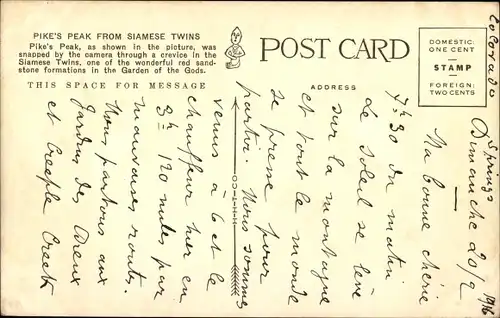 PIKE'S PEAK FROM SIAMESE TWINS
Pike's Peak, as shown in the picture, was
snapped by the camera through a crevice in the
Siamese Twins, one of the wonderful red sand-
stone formations in the Garden of the Gods.
THIS SPACE FOR MESSAGE
POST CARD
ADDRESS
DOMESTIC:
ONE CENT
STAMP
FOREIGN:
TWO CENTS
HHT.CO
Colorado
Springs
Dimanche 20/2 1916
Ma bonne chérie
4h 30 du matin
le soleil se lève
sur la montagne
et tout le monde
se presse pour
partir. Nous sommes
venus à 6 et le
chauffeur hier en
3h 120 miles par
mauvaises routes.
Nous partons aux
Jardins des Dieux
et Creeple Creek